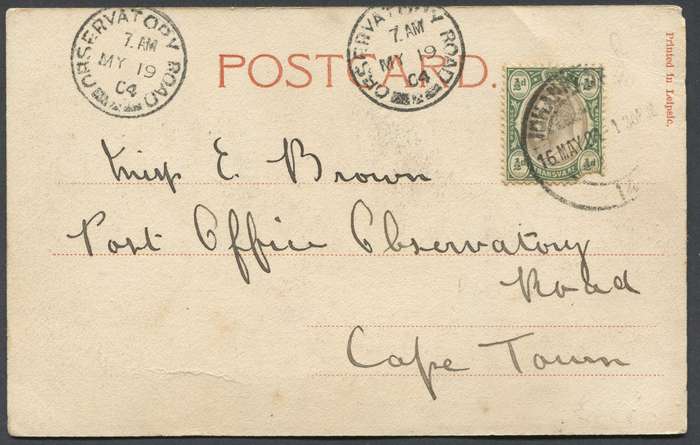 OBSERVATORY ROAD
7. AM
MY 19
04
OBSERVATORY ROAD
7. AM
MY 19
04
POSTCARD.
Printed in Leipsic.
½d ½d
½d ½d
TRANSVAAL
16 MAY
Miss E. Brown
Post Office Observatory
Road
Cape Town